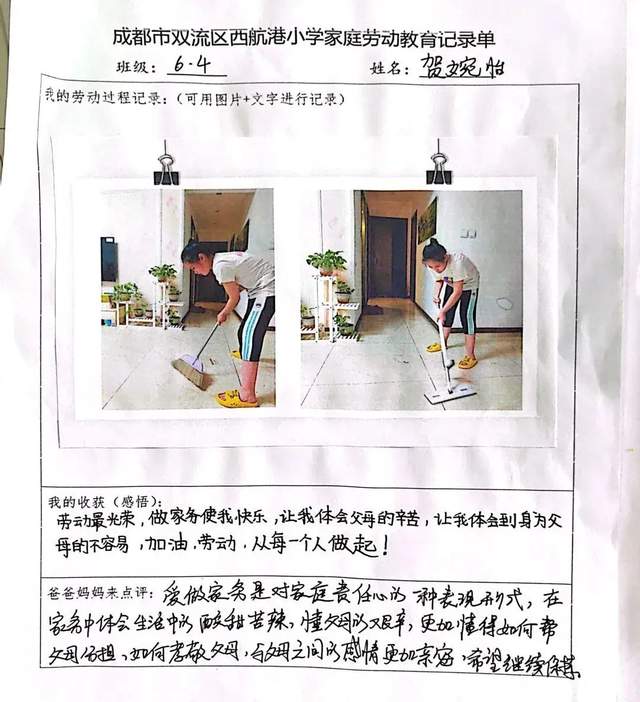 成都市双流区西航港小学家庭劳动教育记录单
班级：6.4 姓名：贺婉怡
我的劳动过程记录：（可用图片+文字进行记录）
我的收获（感悟）：
劳动最光荣，做家务使我快乐，让我体会父母的辛苦，让我体会到身为父
母的不容易，加油，劳动，从每一个人做起！
爸爸妈妈来点评：爱做家务是对家庭责任心的一种表现形式，在
家务中体会生活中的酸甜苦辣，懂父母的艰辛，更加懂得如何帮
父母分担，如何孝敬父母，与父母之间的感情更加亲密，希望继续保持